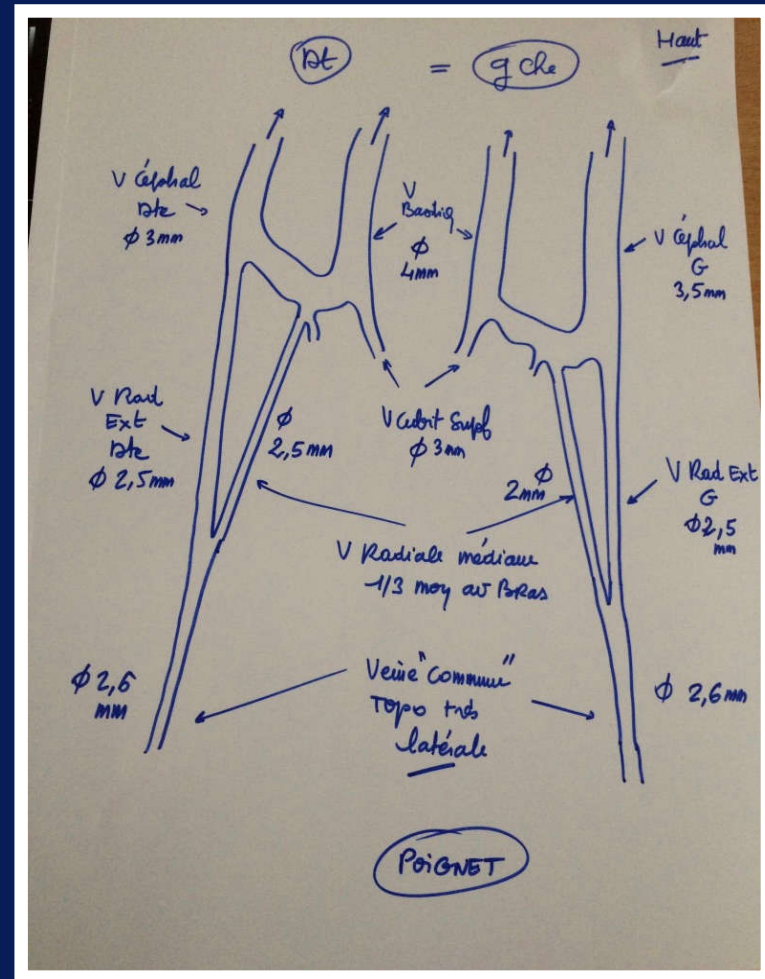 Haut
Dt = gche
V Céphal
Dte
φ 3mm
V
Basiliq
φ
4mm
V Céphal
G
3,5mm
V Rad
Ext
Dte
φ 2,5mm
φ
2,5mm
V Cubit Supf
φ 3mm
φ
2mm
V Rad Ext
G
φ2,5
mm
V Radiale médiane
1/3 moy av BRas
φ 2,6
mm
Veine "Commune"
Topo très
latérale
φ 2,6mm
POIGNET